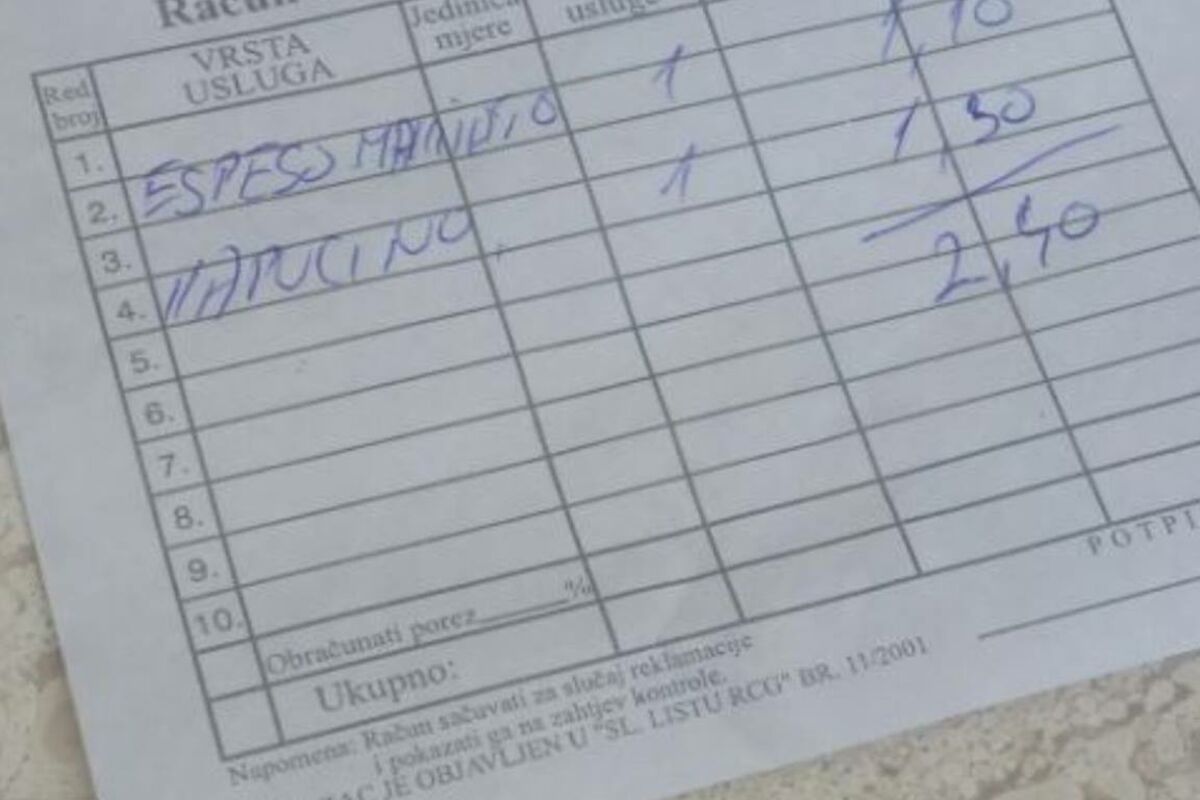 Račun
Red. broj
VRSTA USLUGA
Jedinica mjere
usluge
1. ESPESO MAKIJATO 1 1,10
2.
3. KAPUCINO 1 1,30
4.
2,40
5.
6.
7.
8.
9.
10.
Obračunati porez______%
Ukupno:
Napomena: Račun sačuvati za slučaj reklamacije
i pokazati ga na zahtjev kontrole.
JE OBJAVLJEN U "SL. LISTU RCG" BR. 11/2001
POTPI